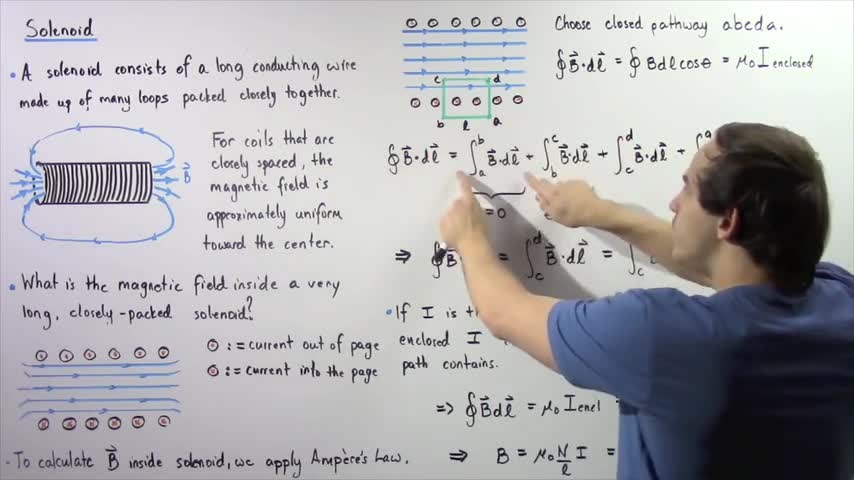 Solenoid
• A solenoid consists of a long conducting wire
made up of many loops packed closely together.
B⃗
For coils that are
closely spaced, the
magnetic field is
approximately uniform
toward the center.
• What is the magnetic field inside a very
long, closely-packed solenoid?
⊙ := current out of page
⊗ := current into the page
• To calculate B⃗ inside solenoid, we apply Ampère's Law.
c d
b l a
Choose closed pathway abcda.
∮B⃗·dl⃗ = ∮Bdlcosθ = μ₀I enclosed
∮B⃗·dl⃗ = ∫ₐᵇ B⃗·dl⃗ + ∫_b^c B⃗·dl⃗ + ∫_c^d B⃗·dl⃗ +
=0
⇒ ∮B⃗ = ∫_c^d B⃗·dl⃗ = ∫_c
• If I is
enclosed I
path contains.
⇒ ∮B⃗dl⃗ = μ₀I encl
⇒ B = μ₀ N/l I =